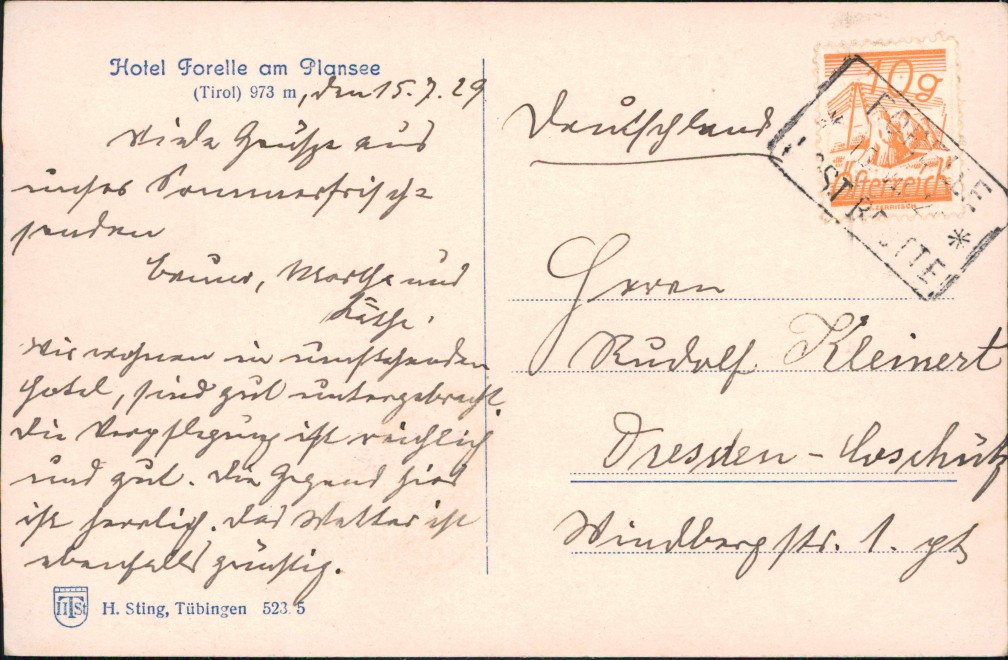 Hotel Forelle am Plansee
(Tirol) 973 m, den 15.7.29
Viele Grüße aus
unsrer Sommerfrische
senden
Bruno, Martha und
Käthe.
Wir wohnen in umstehenden
Hotel, sind gut untergebracht.
Die Verpflegung ist reichlich
und gut. Die Gegend hier
ist herrlich. Das Wetter ist
ebenfalls günstig.
H. Sting, Tübingen 523 5
10 g
Österreich
POST REUTTE
Deutschland
Herrn
Rudolf Kleinert
Dresden - Coschütz
Windbergstr. 1. pt